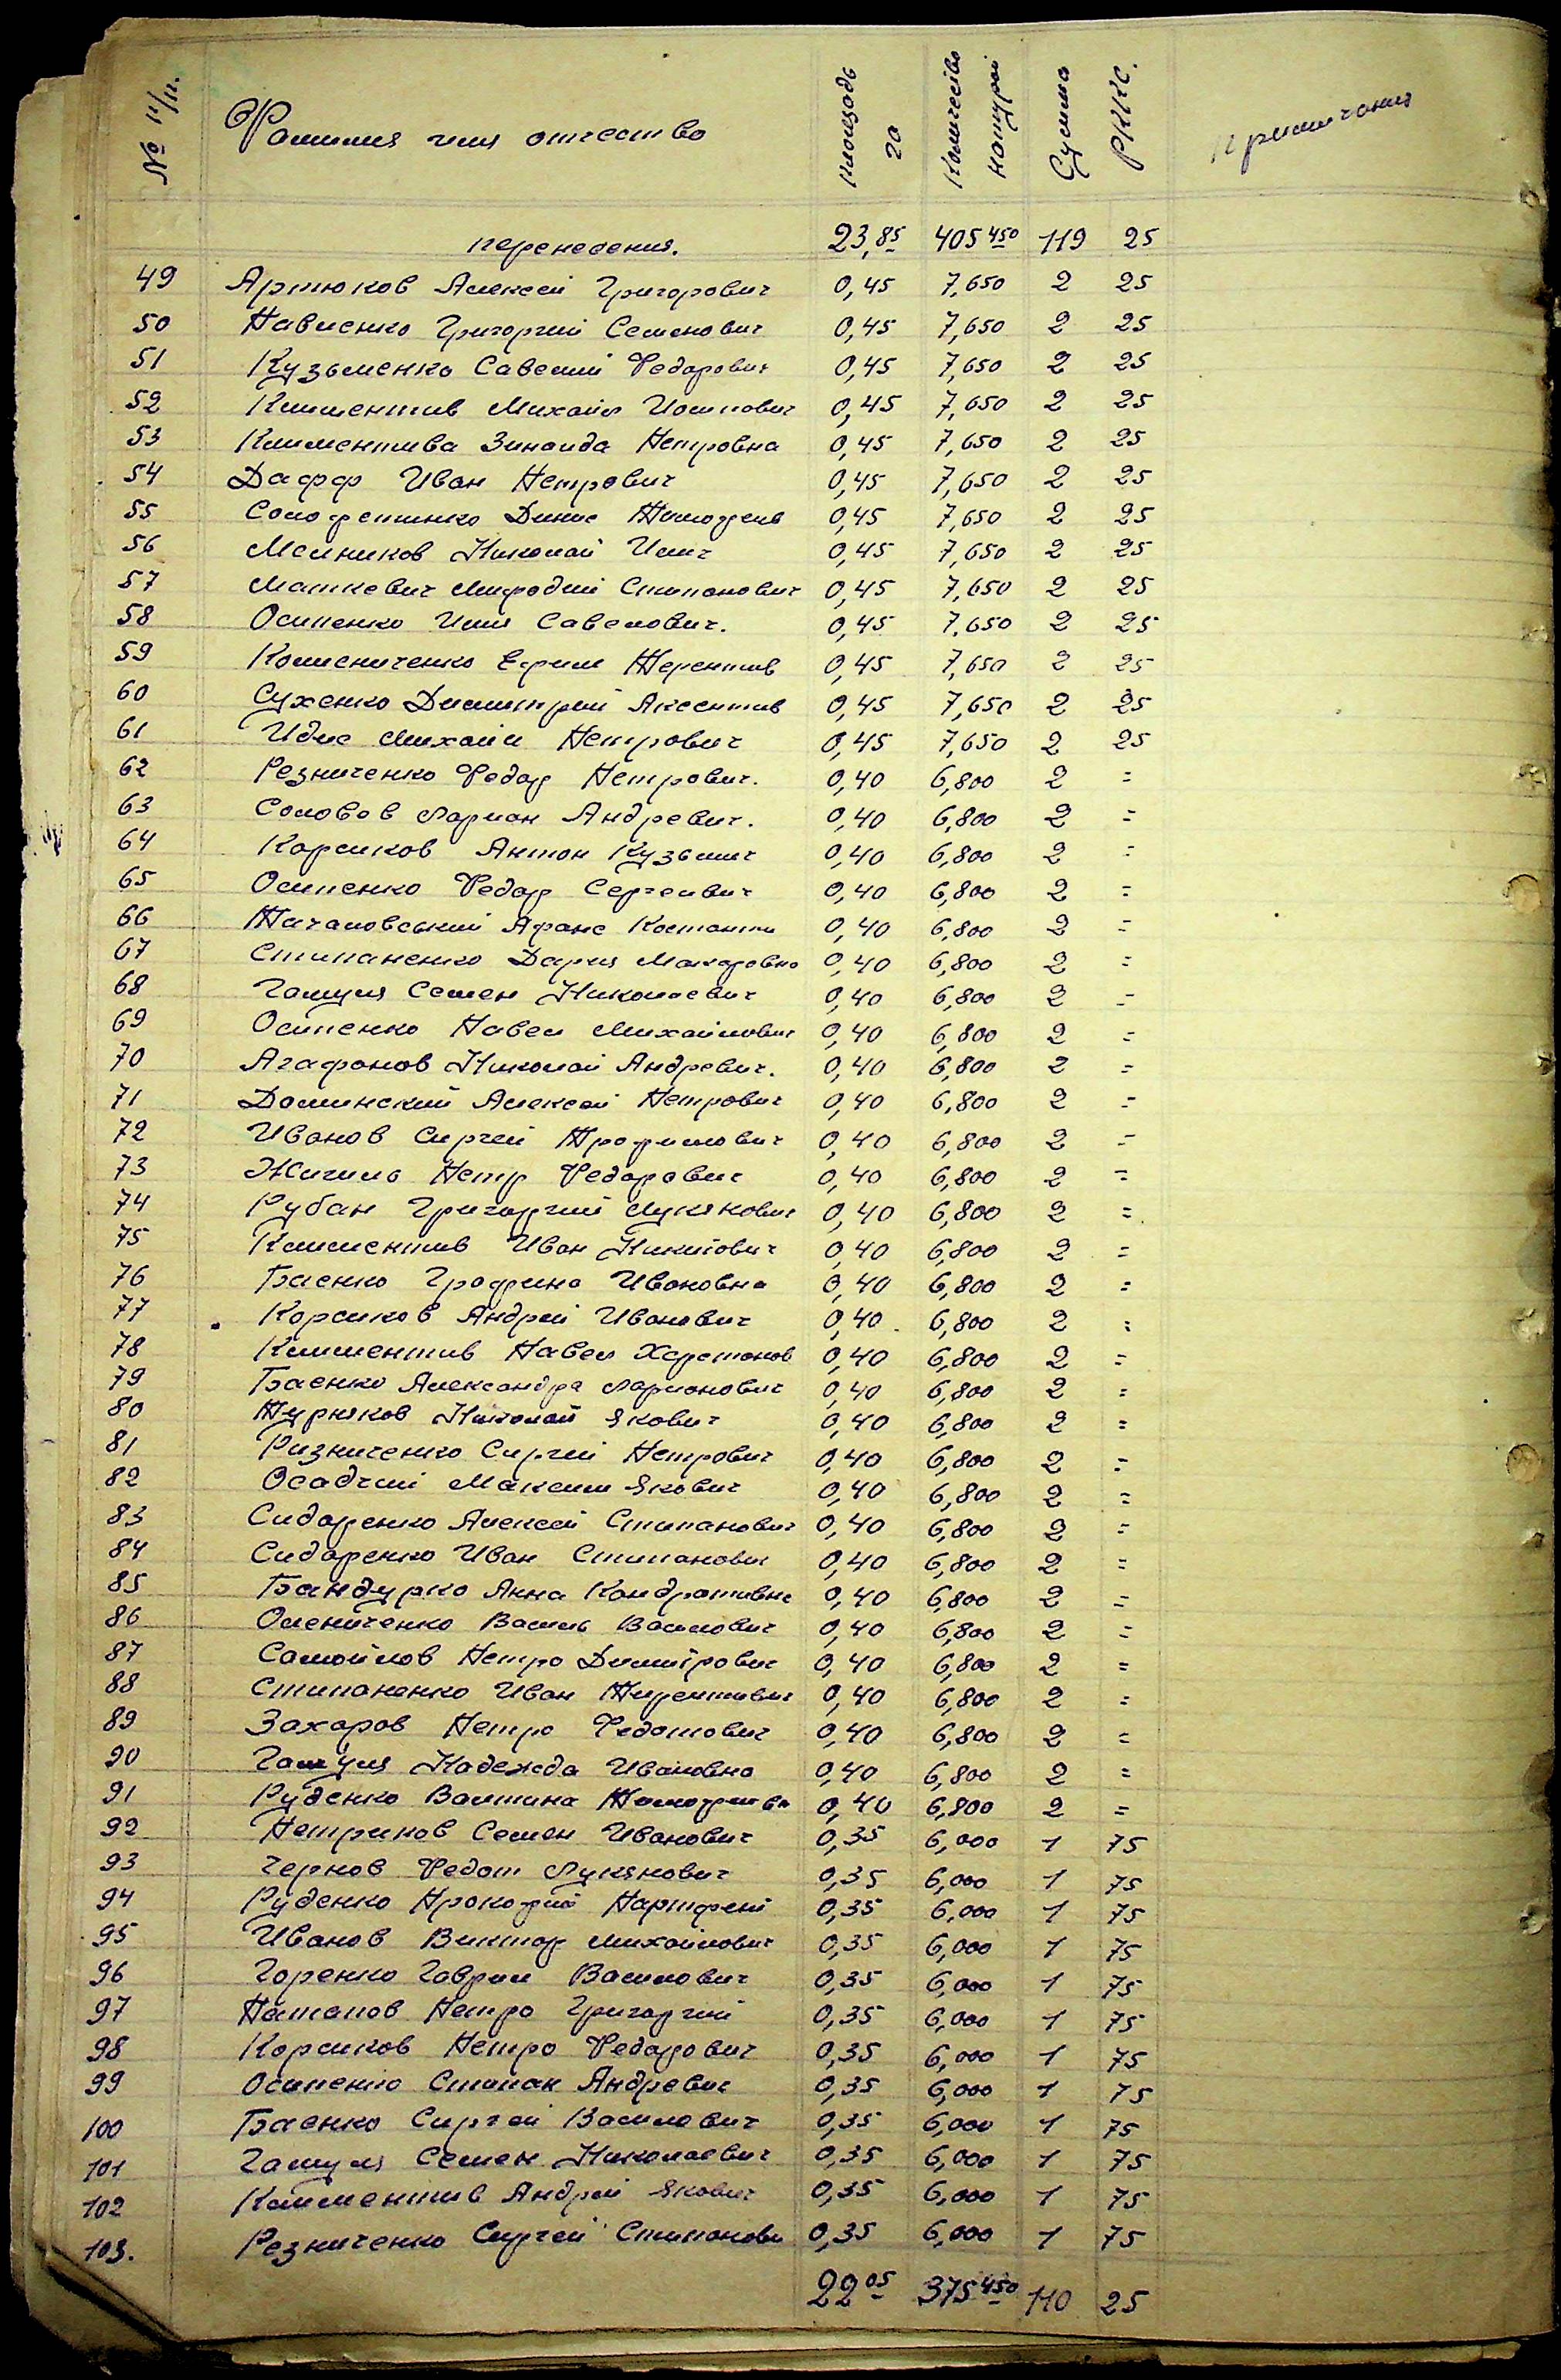 № п/п. Фамилия имя отчество площадь га Количество натурой Сумма РККС. примечания
перенесения. 23,85 405 450 119 25
49 Артюков Алексей Григорович 0,45 7,650 2 25
50 Павленко Григорий Семенович 0,45 7,650 2 25
51 Кузьменко Савелий Федорович 0,45 7,650 2 25
52 Климентив Михайл Иосипович 0,45 7,650 2 25
53 Климентива Зинаида Петровна 0,45 7,650 2 25
54 Дафф Иван Петрович 0,45 7,650 2 25
55 Денис 0,45 7,650 2 25
56 Мелников Николай Илич 0,45 7,650 2 25
57 Маткевич Мифодий Стипанович 0,45 7,650 2 25
58 Осипенко Илия Савелович. 0,45 7,650 2 25
59 Ефим Терентив 0,45 7,650 2 25
60 Сухенко Димитрий Аксентив 0,45 7,650 2 25
61 Идис Михайл Петрович 0,45 7,650 2 25
62 Резниченко Федор Петрович. 0,40 6,800 2 =
63 Соловов Ларион Андревич. 0,40 6,800 2 =
64 Корсиков Антон Кузьмич 0,40 6,800 2 =
65 Осипенко Федор Сергеивич 0,40 6,800 2 =
66 Афанс 0,40 6,800 2 =
67 Стипаненко Дария Макаровна 0,40 6,800 2 =
68 Гамуля Семен Николаевич 0,40 6,800 2 =
69 Осипенко Павел Михайлович 0,40 6,800 2 =
70 Агафонов Николай Андревич. 0,40 6,800 2 =
71 Доминский Алексей Петрович 0,40 6,800 2 =
72 Иванов Сиргей Трофимович 0,40 6,800 2 =
73 Жигиль Петр Федорович 0,40 6,800 2 =
74 Рубан Григорий Лукянович 0,40 6,800 2 =
75 Климентив Иван Никитович 0,40 6,800 2 =
76 Баенко Графина Ивановна 0,40 6,800 2 =
77 Корсиков Андрей Иванович 0,40 6,800 2 =
78 Климентив Павел Харетонов 0,40 6,800 2 =
79 Баенко Александра Ларионович 0,40 6,800 2 =
80 Турняков Николай Якович 0,40 6,800 2 =
81 Ризниченко Сиргей Петрович 0,40 6,800 2 =
82 Осадчий Максим Якович 0,40 6,800 2 =
83 Сидоренко Алексей Стипанович 0,40 6,800 2 =
84 Сидоренко Иван Стипанович 0,40 6,800 2 =
85 Бандурко Анна Кондративна 0,40 6,800 2 =
86 Олениченко Василь Василович 0,40 6,800 2 =
87 Самойлов Петро Димитрович 0,40 6,800 2 =
88 Стипаненко Иван Тирентивич 0,40 6,800 2 =
89 Захаров Петро Федотович 0,40 6,800 2 =
90 Гамуля Надежда Ивановна 0,40 6,800 2 =
91 Руденко Валтина 0,40 6,800 2 =
92 Петринов Семен Иванович 0,35 6,000 1 75
93 Чернов Федот Лукянович 0,35 6,000 1 75
94 Руденко Прокофий Партфей 0,35 6,000 1 75
95 Иванов Виктор Михайлович 0,35 6,000 1 75
96 Горенко Гаврил Василович 0,35 6,000 1 75
97 Потапов Петро Григорий 0,35 6,000 1 75
98 Корсиков Петро Федорович 0,35 6,000 1 75
99 Осипенко Стипан Андревич 0,35 6,000 1 75
100 Баенко Сиргей Василович 0,35 6,000 1 75
101 Гамуля Семен Николаевич 0,35 6,000 1 75
102 Климентив Андрей Якович 0,35 6,000 1 75
103. Резниченко Сиргей Стипанови 0,35 6,000 1 75
22 05 375 450 110 25